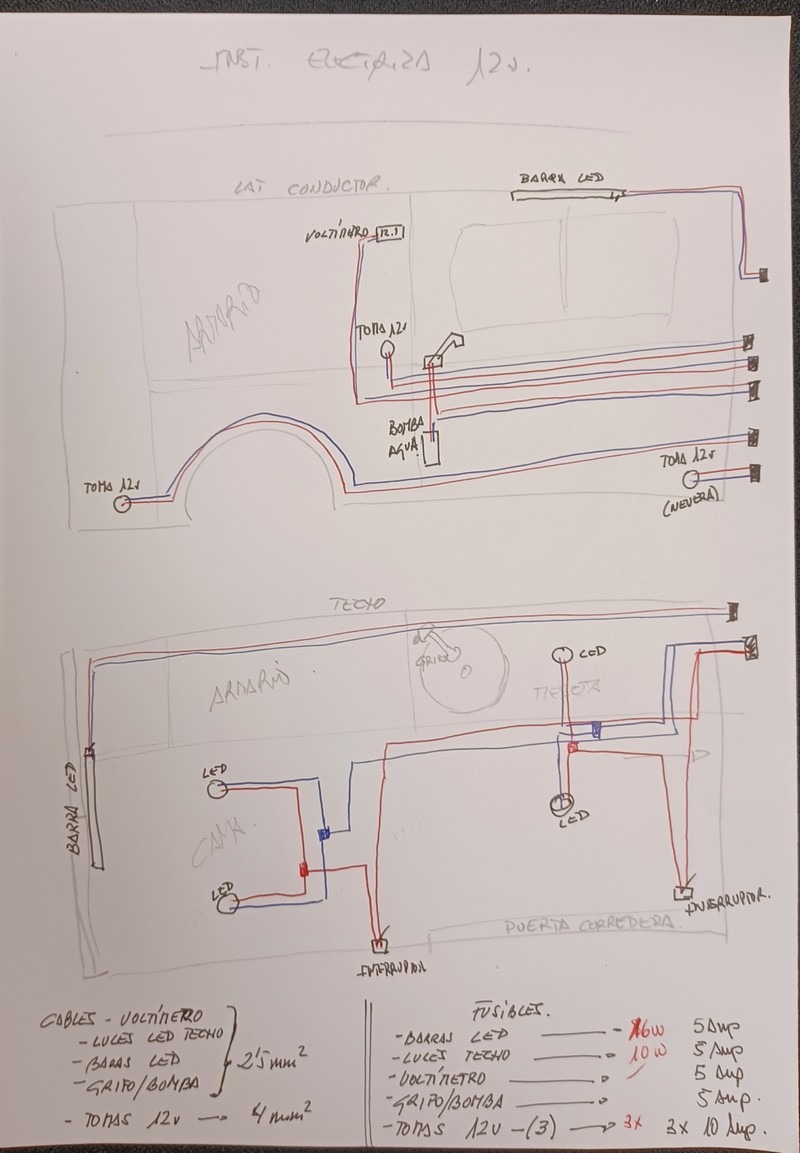 INST. ELECTRIZA 12v.
LAT CONDUCTOR.
BARRA LED
VOLTÍMETRO
12.7
ARMARIO
TOMA 12v
BOMBA
AGUA
TOMA 12v
TOMA 12v
(NEVERA)
TECHO
ARMARIO
GRIFO
LED
LED
LED
BARRA LED
CAMA
LED
INTERRUPTOR.
PUERTA CORREDERA.
INTERRUPTOR
CABLES - VOLTÍMETRO
- LUCES LED TECHO
- BARAS LED
- GRIFO/BOMBA
2'5 mm²
- TOMAS 12v → 4 mm²
FUSIBLES.
- BARRAS LED 16W 5 Amp
- LUCES TECHO 10W 5 Amp
- VOLTÍMETRO 5 Amp
- GRIFO/BOMBA 5 Amp.
- TOMAS 12v - (3) → 3x 3x 10 Amp.